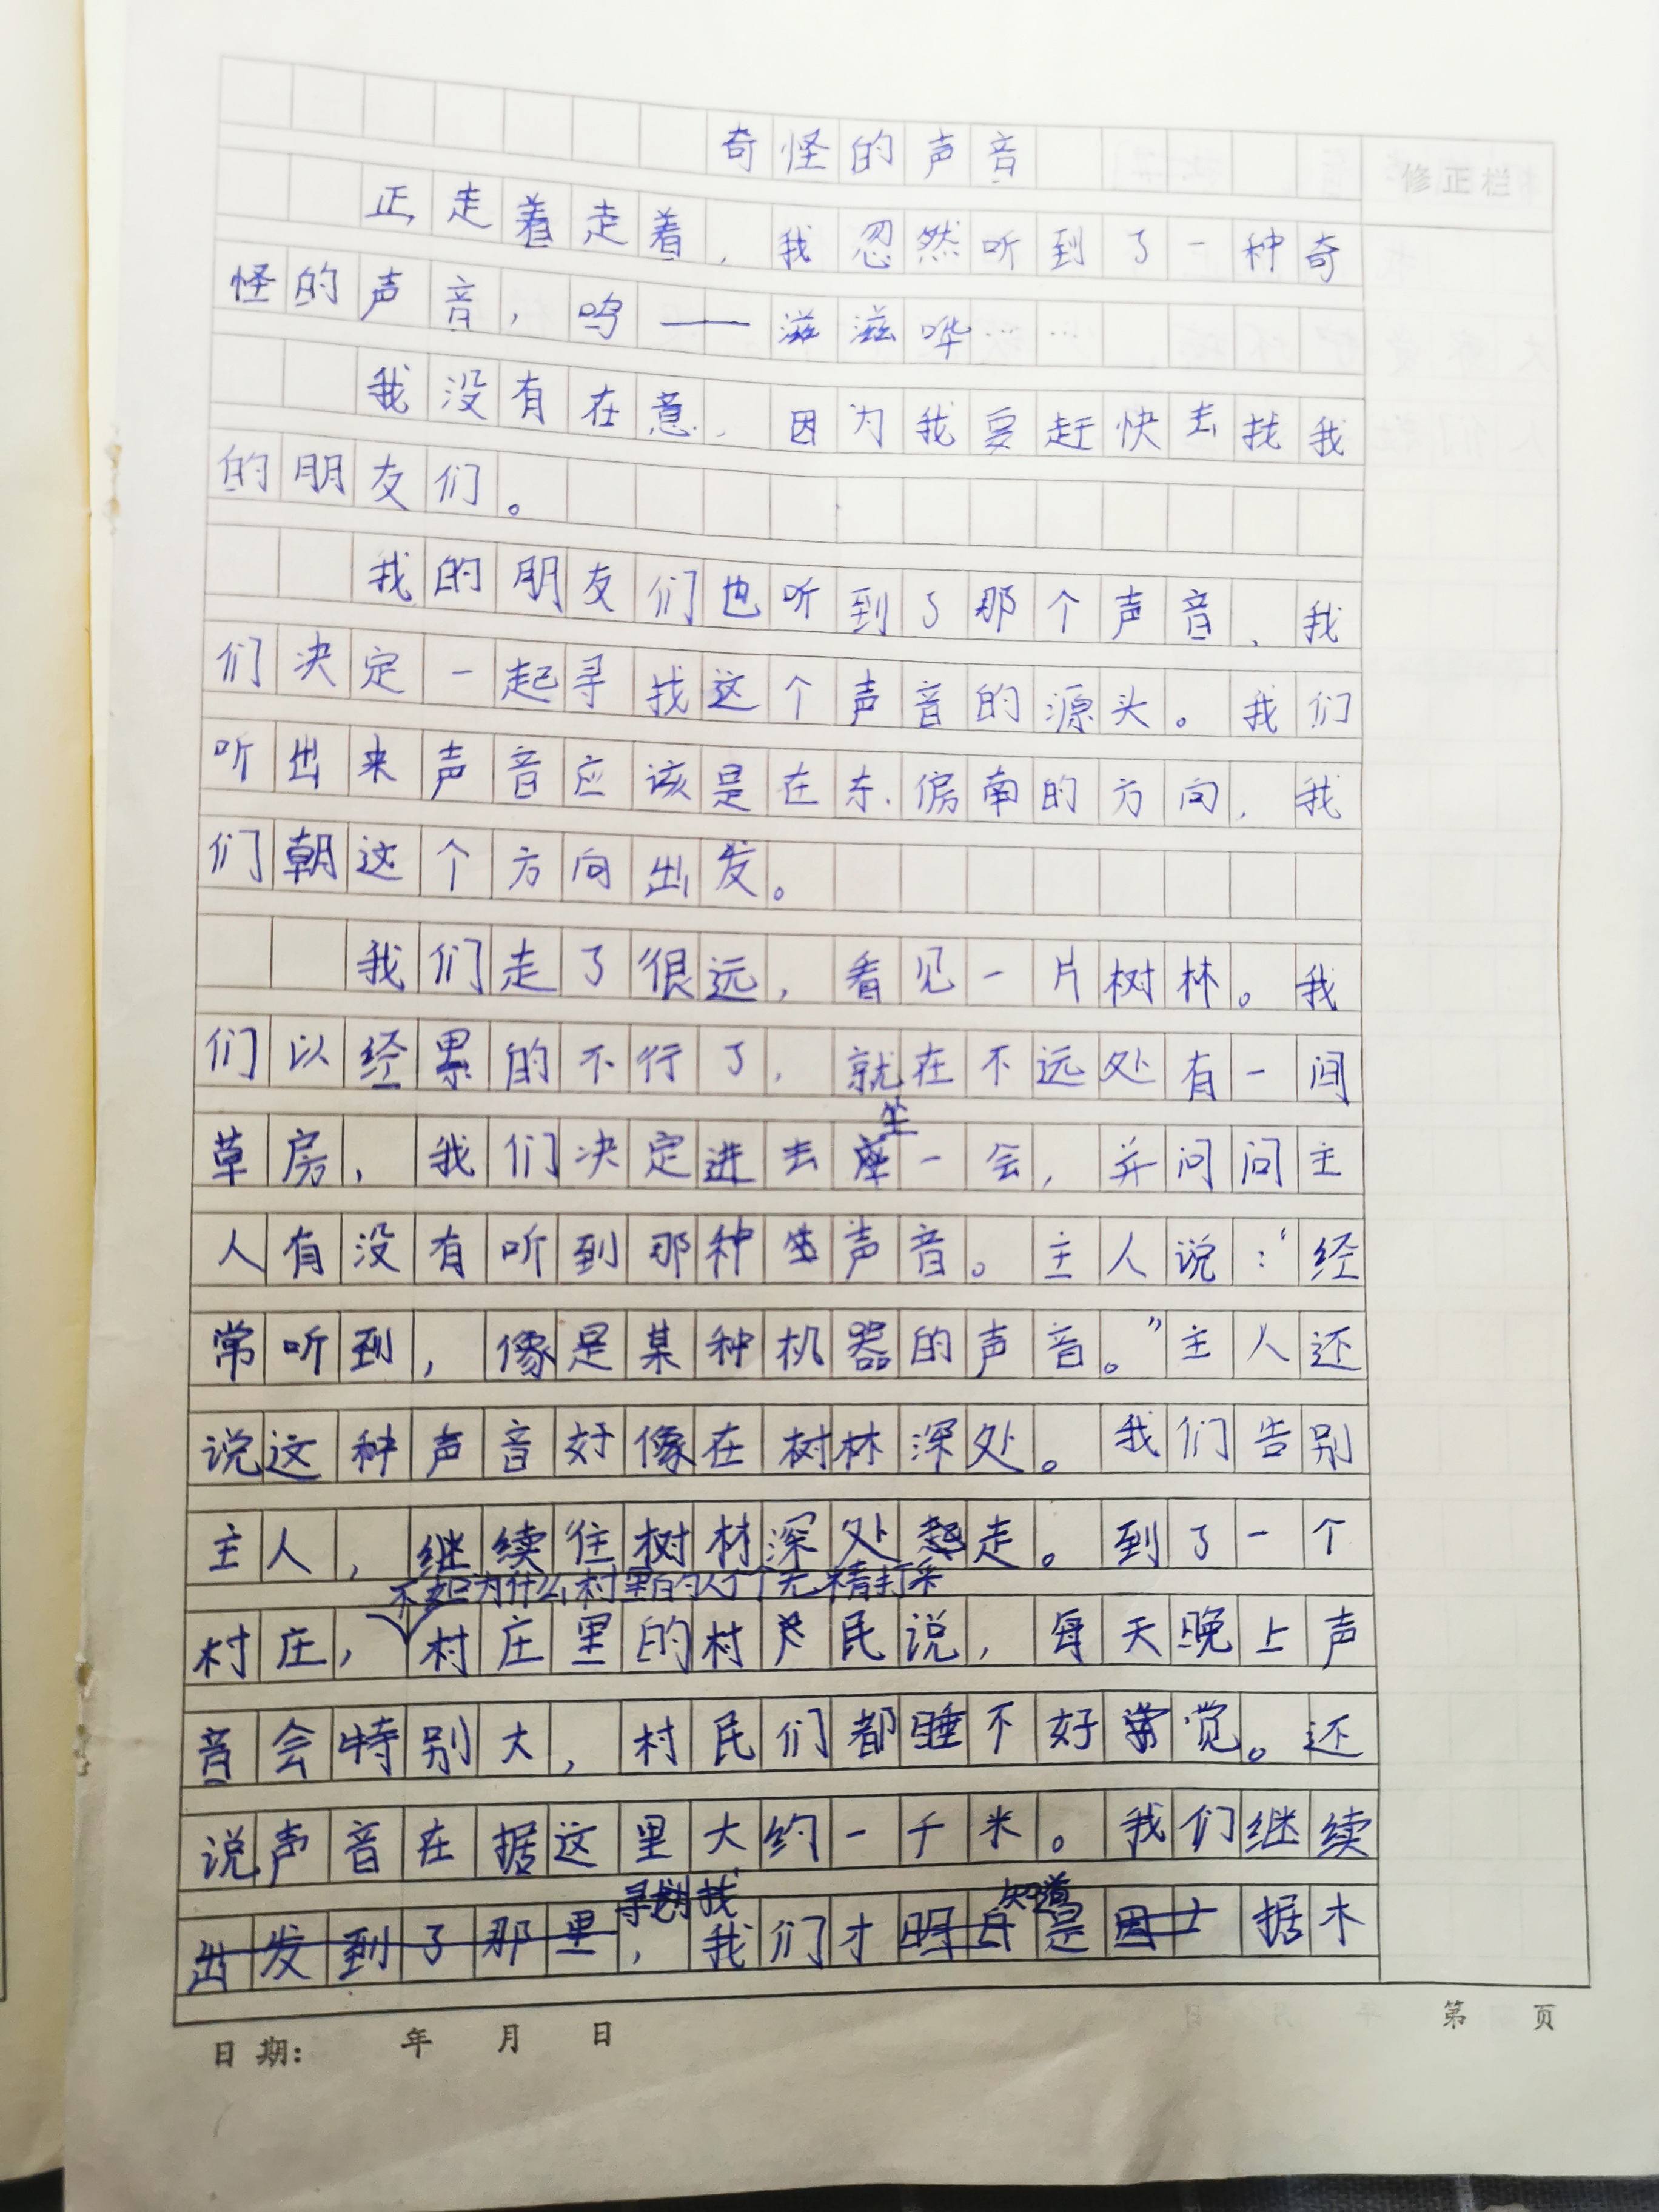 奇怪的声音
修正栏
正走着走着，我忽然听到了一种奇
怪的声音，呜——滋滋哗……
我没有在意，因为我要赶快去找我
的朋友们。
我的朋友们也听到了那个声音，我
们决定一起寻找这个声音的源头。我们
听出来声音应该是在东偏南的方向，我
们朝这个方向出发。
我们走了很远，看见一片树林。我
们以经累的不行了，就在不远处有一间
坐
草房，我们决定进去座一会，并问问主
人有没有听到那种声音。主人说：“经
常听到，像是某种机器的声音。”主人还
说这种声音好像在树林深处。我们告别
主人，继续往树材深处走。到了一个
不知为什么村里的人个个无精打采
村庄，村庄里的村民说，每天晚上声
音会特别大，村民们都睡不好觉。还
说声音在据这里大约一千米。我们继续
寻找 知道
出发到了那里，我们才明白是因为据木
日期： 年 月 日
第 页